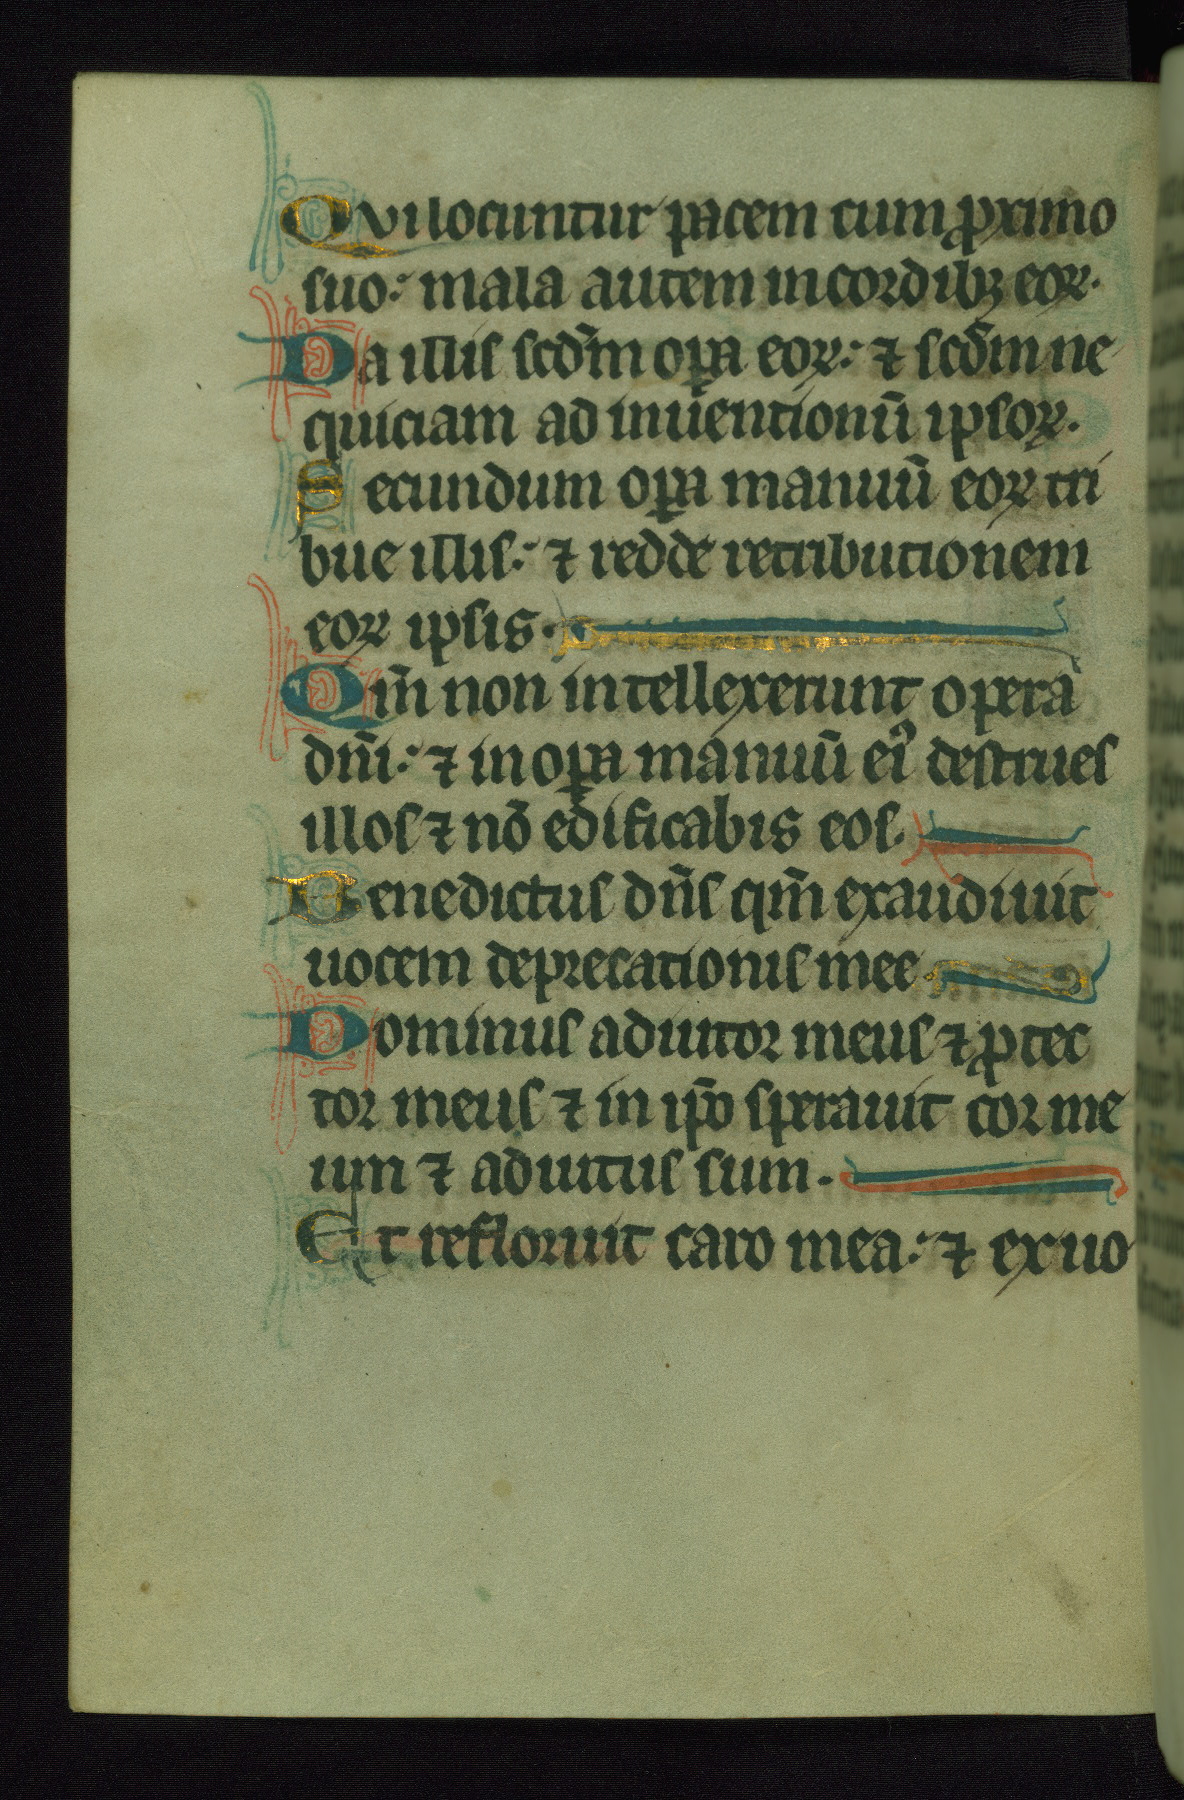 Qui locuntur pacem cum ꝓximo
suo: mala autem in cordibꝫ eoꝝ.
Da illis scd̄m oꝑa eoꝝ: ⁊ scd̄m ne
quiciam ad inuentionū ipsoꝝ.
Secundum oꝑa manuū eoꝝ tri
bue illis: ⁊ redde retributionem
eoꝝ ipsis.
Qm̄ non intellexerunt opera
dn̄i: ⁊ in oꝑa manuū eiꝰ destrues
illos ⁊ nō edificabis eos.
Benedictus dn̄s qm̄ exaudiuit
uocem deprecationis mee
Dominus adiutor meus ⁊ ꝓtec
tor meus ⁊ in ip̄o sperauit cor me
um ⁊ adiutus sum.
Et refloruit caro mea: ⁊ ex uo